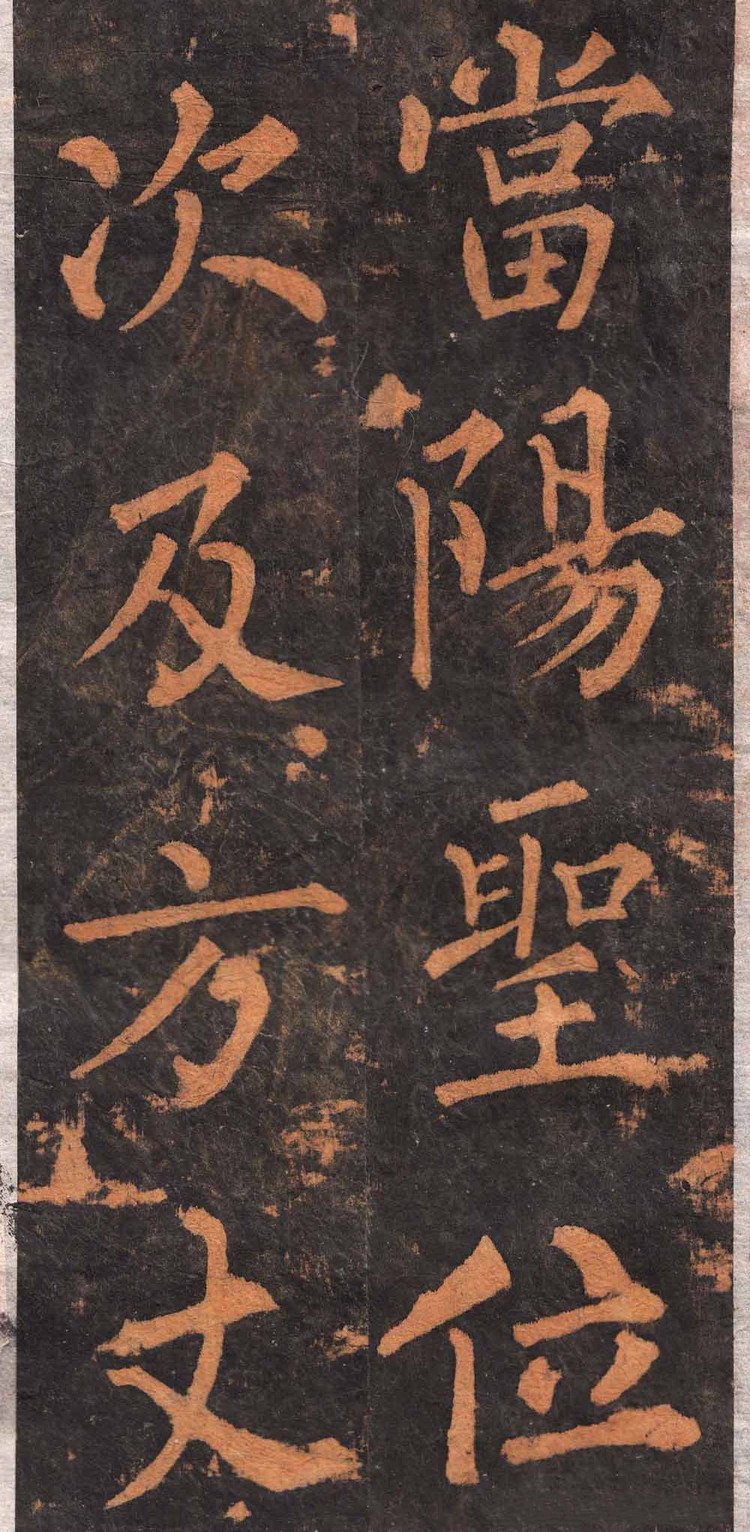 當陽聖位
次及方丈